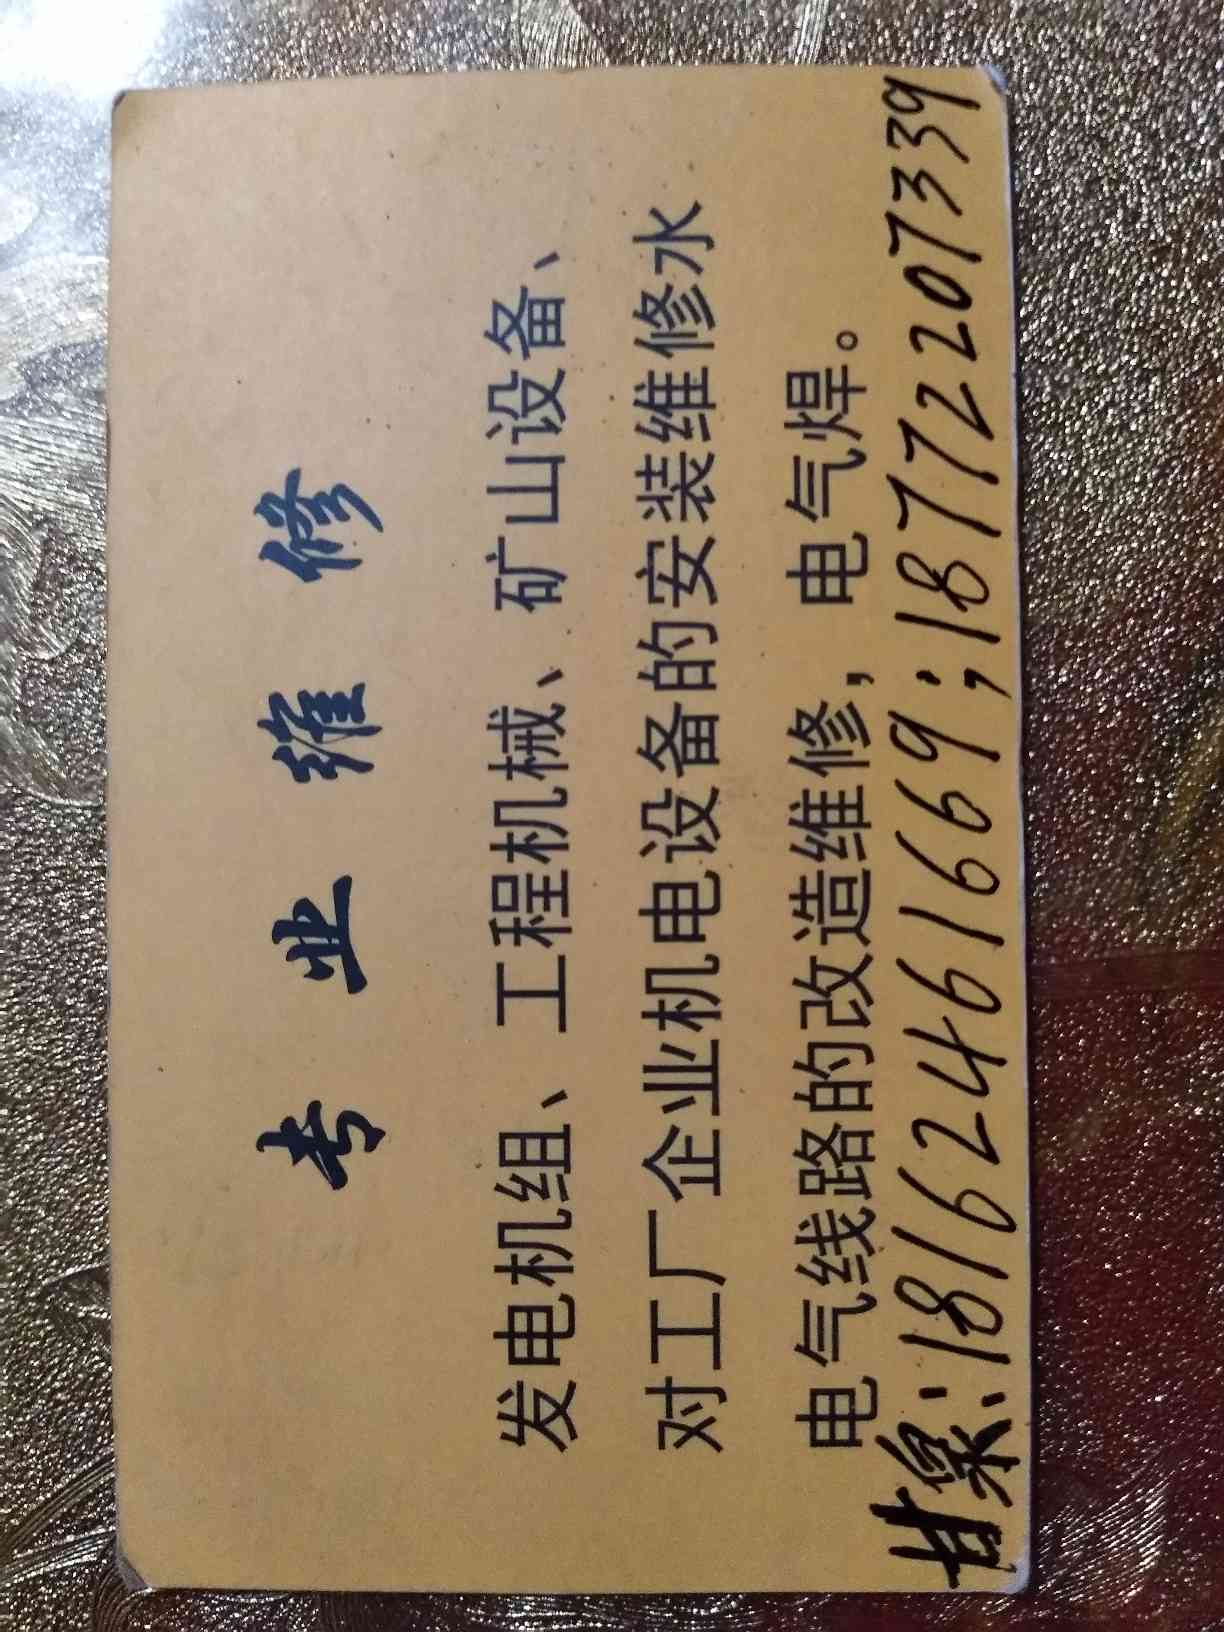 专业维修
发电机组、工程机械、矿山设备、
对工厂企业机电设备的安装维修水
电气线路的改造维修，电气焊。
甘:18162461669;18772207339